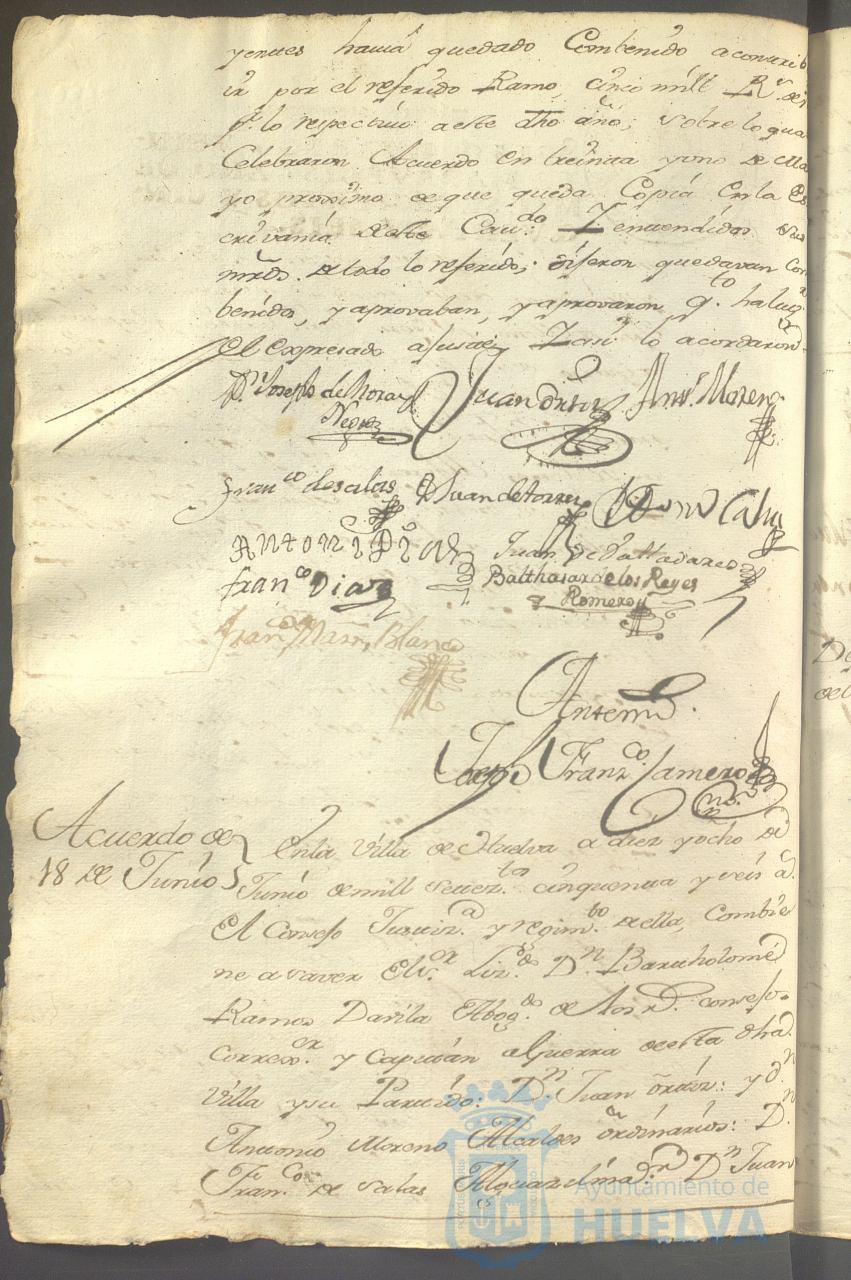 yentes havia quedado Combenido a contrib
ir por el referido Ramo, cinco mill R.s de v
p.r lo respectivo a este dho año; sobre lo qua
Celebraron Acuerdo en treinta y uno de Ma
yo proximo de que queda Copia en la Es
crivania de este Cav.do Y entendidos sus
mrds. de todo lo referido; dijeron quedavan Com
benidos, y aprovaban, y aprovaron q.to ha
el expresado y asi lo acordaron
D.n Joseph de Mora y
Negro
Juan Ortiz
Ant.o Moreno
Fran.co de salas
D Juan de torres
Antoni
Juan de Valladares
fran.co Diaz
Balthasar de los Reyes
Romero
Fran.co Martn, Blanco
Antemi.
Joseph Franz.co Camero
Acuerdo de
18 de Junio
En la Villa de Huelva a diez y ocho de
Junio de mill setez.tos cinquenta y seis a.
El Consejo Justiz.a y regim.to de ella, combie
ne a saver El s.or Liz.do D.n Bartholomé
Ramos Davila Abog.do de los r.s consejos
Correx.or y Capitán a Guerra de esta dha.
Villa y su Partido: D.n Juan ortiz: y D.n
Antonio Moreno Alcaldes ordinarios: D.n
Fran.co de salas Alguazil ma.or D.n Juan
Ayuntamiento de
HUELVA